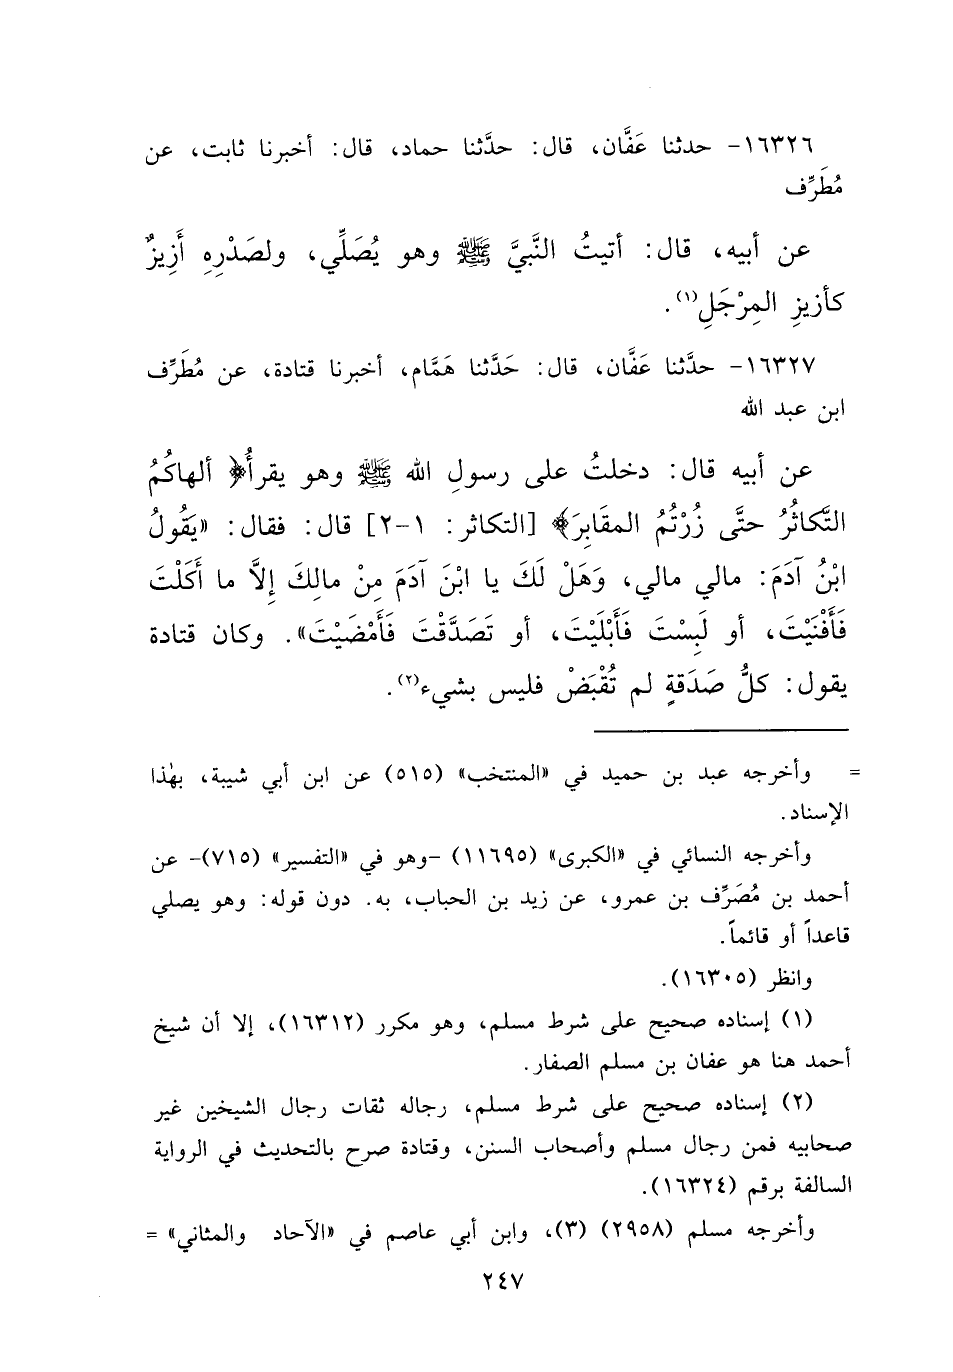 ١٦٣٢٦- حدثنا عَفَّان، قال: حدَّثنا حماد، قال: أخبرنا ثابت، عن
مُطَرِّف
عن أبيه، قال: أتيتُ النَّبيَّ ﷺ وهو يُصَلِّي، ولصَدْرِهِ أَزِيزٌ
كأزيزِ المِرْجَلِ(١).
١٦٣٢٧- حدَّثنا عَفَّان، قال: حَدَّثنا هَمَّام، أخبرنا قتادة، عن مُطَرِّف
ابن عبد الله
عن أبيه قال: دخلتُ على رسولِ الله ﷺ وهو يقرأُ﴿ ألهاكُمُ
التَّكاثُرُ حتَّى زُرْتُمُ المقَابِرَ﴾ [التكاثر: ١-٢] قال: فقال: «يَقُولُ
ابْنُ آدَمَ: مالي مالي، وَهَلْ لَكَ يا ابْنَ آدَمَ مِنْ مالِكَ إِلاَّ ما أَكَلْتَ
فَأَفْنَيْتَ، أو لَبِسْتَ فَأَبْلَيْتَ، أو تَصَدَّقْتَ فَأَمْضَيْتَ». وكان قتادة
يقول: كلُّ صَدَقةٍ لم تُقْبَضْ فليس بشيء(٢).
= وأخرجه عبد بن حميد في «المنتخب» (٥١٥) عن ابن أبي شيبة، بهٰذا
الإسناد.
وأخرجه النسائي في «الكبرى» (١١٦٩٥) -وهو في «التفسير» (٧١٥)- عن
أحمد بن مُصَرِّف بن عمرو، عن زيد بن الحباب، به. دون قوله: وهو يصلي
قاعداً أو قائماً.
وانظر (١٦٣٠٥).
(١) إسناده صحيح على شرط مسلم، وهو مكرر (١٦٣١٢)، إلا أن شيخ
أحمد هنا هو عفان بن مسلم الصفار.
(٢) إسناده صحيح على شرط مسلم، رجاله ثقات رجال الشيخين غير
صحابيه فمن رجال مسلم وأصحاب السنن، وقتادة صرح بالتحديث في الرواية
السالفة برقم (١٦٣٢٤).
وأخرجه مسلم (٢٩٥٨) (٣)، وابن أبي عاصم في «الآحاد والمثاني» =
٢٤٧